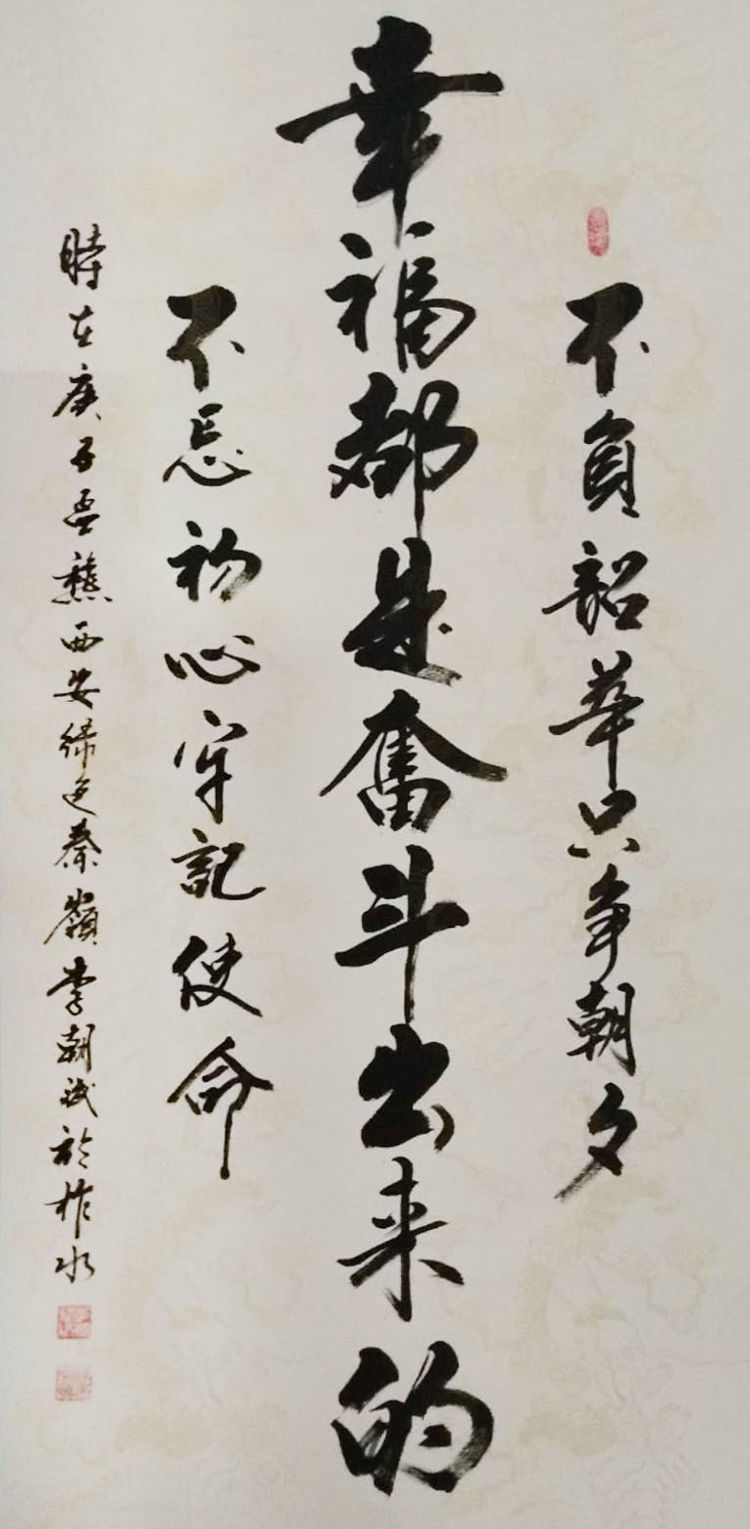 不負韶華只争朝夕
幸福都是奮斗出来的
不忘初心牢記使命
時在庚子孟龝西安綠色秦嶺李朝於柞水